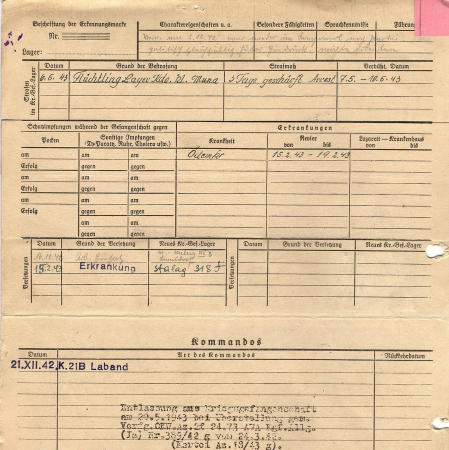 Beschriftung der Erkennungsmarke
Nr.
Lager:
Charaktereigenschaften u. a.
Besondere Fähigkeiten
Sprachkenntnisse
Führung
Strafen im Kr.-Gef.-Lager
Datum Grund der Bestrafung Strafmaß Verbüßt, Datum
6.6.43 Flüchtling Lager Kdo. Muna 3 Tage geschärft. Arrest 7.5. – 10.6.43
Schutzimpfungen während der Gefangenschaft gegen
Erkrankungen
Pocken
Sonstige Impfungen
(Ty-Paraty, Ruhr, Cholera usw.)
Krankheit
Revier
von bis
Lazarett – Krankenhaus
von bis
am am am
Erfolg gegen gegen
am am am
Erfolg gegen gegen
am am am
Erfolg gegen gegen
am am
gegen gegen
15.2.43 – 19.2.43
Versetzungen
Datum Grund der Versetzung Neues Kr.-Gef.-Lager
Versetzungen
Datum Grund der Versetzung Neues Kr.-Gef.-Lager
15.2.43 Erkrankung Stalag 318 F
Kommandos
Datum Art des Kommandos Rückkehrdatum
21.XII.42, K.21B Laband
Entlassung aus Kriegsgefangenschaft
am 29.5.1943 bei Überstellung gem.
Verfg.OKW.Az.2f 24.73 AWA Kgf.Allg.
(Ia) Nr.389/42 g vom 24.3.42.
(Kartei Az.18/43 g).